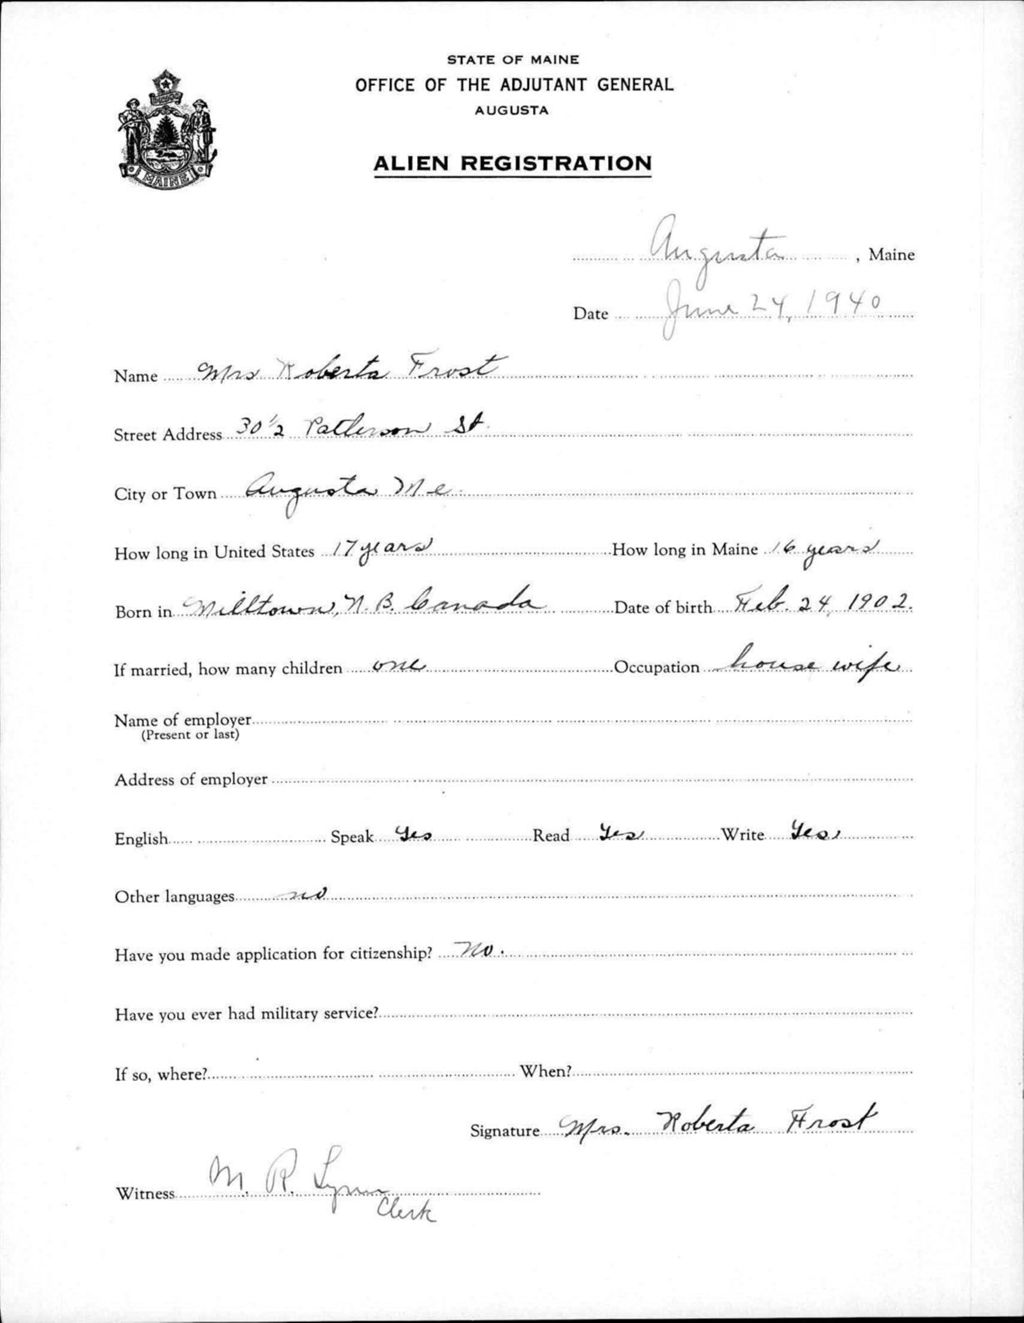 STATE OF MAINE
OFFICE OF THE ADJUTANT GENERAL
AUGUSTA
MAINE
ALIEN REGISTRATION
Augusta, Maine
Date June 24, 1940
Name Mrs Roberta Frost
Street Address 30 1/2 Patterson St
City or Town Augusta Me.
How long in United States 17 years How long in Maine 16 years
Born in Milltown, N. B. Canada Date of birth Feb. 24, 1902.
If married, how many children one Occupation house wife
Name of employer
(Present or last)
Address of employer
English Speak Yes Read Yes Write Yes
Other languages no
Have you made application for citizenship? No.
Have you ever had military service?
If so, where? When?
Signature Mrs. Roberta Frost
Witness M. R. Lynn
Clerk